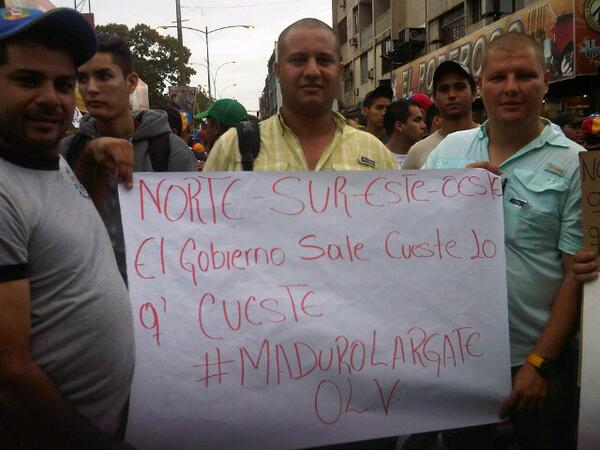 NORTE-SUR-ESTE-OESTE
El Gobierno Sale Cueste Lo
q' CUESTE
#MADUROLARGATE
OLV.